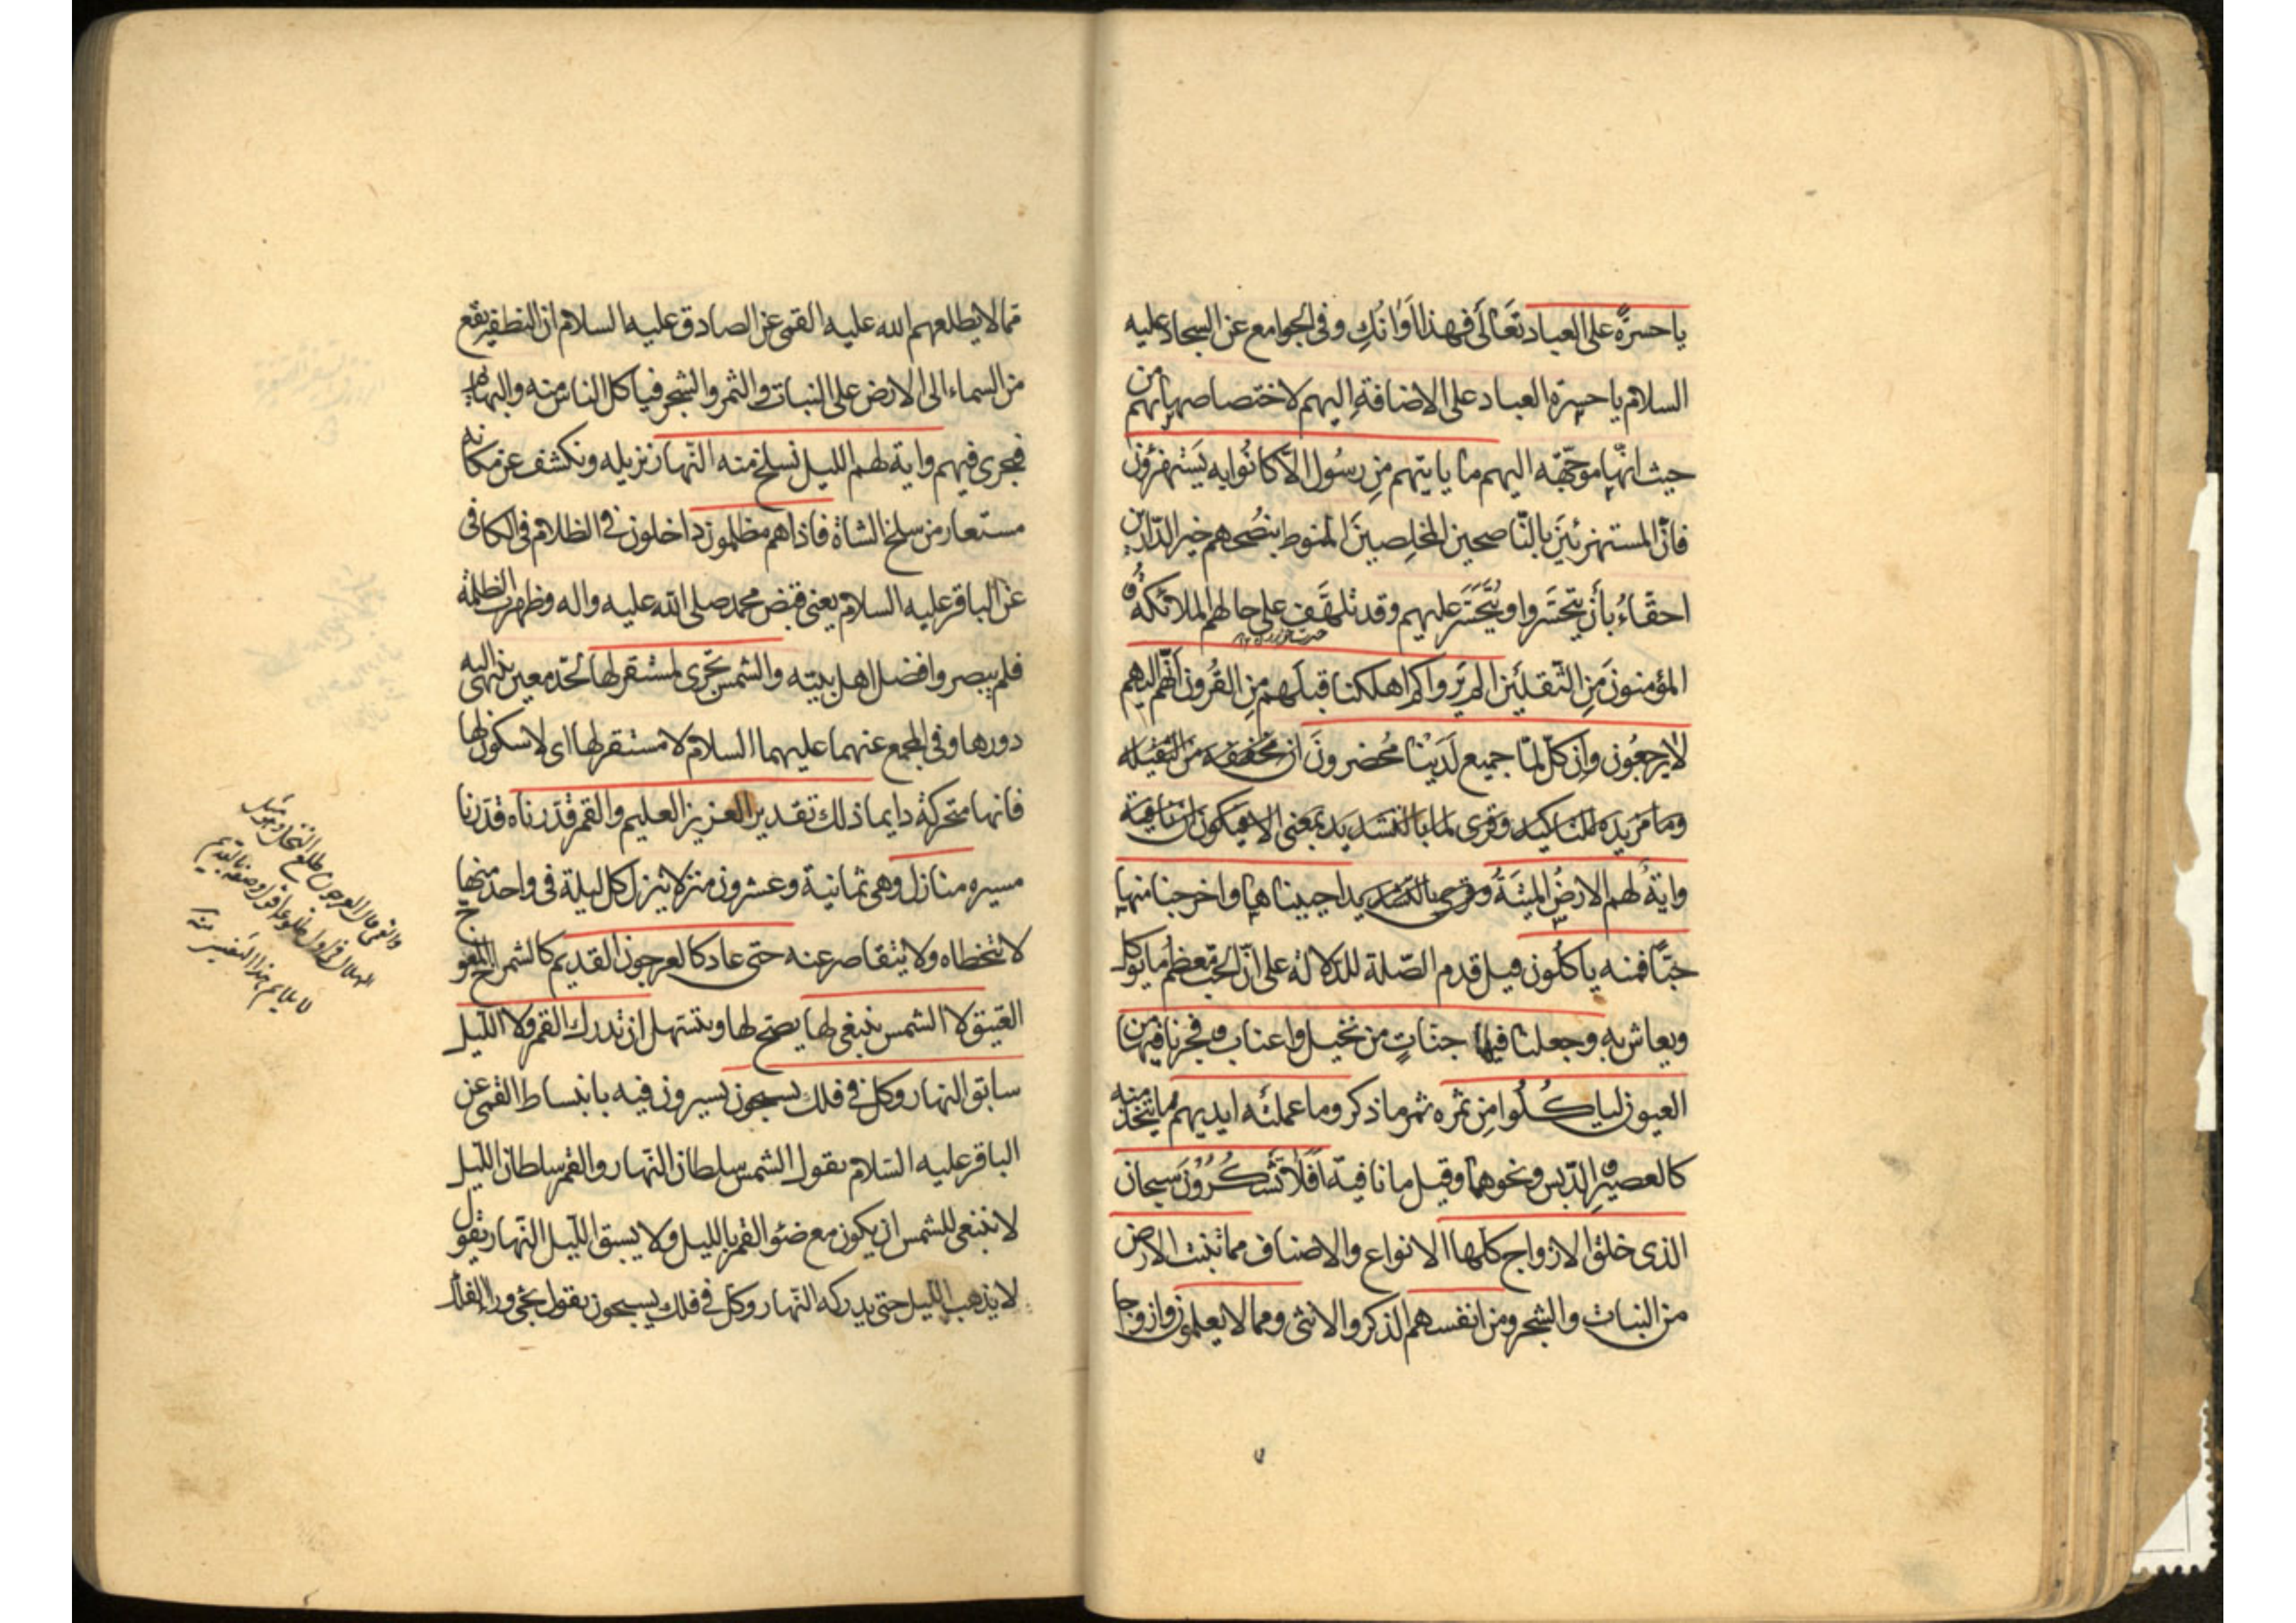 يا حسرةً على العباد تعَالَى فهذا اَوَانُكِ و فى الجوامع عن السجاد عليه
السلام يا حسرة العباد على الاضافةِ اليهم لاختصاصها بهم من
حيث انّها موجّهة اليهم ما ياتيهم مِن رسُول الّا كانُوا به يَستهزؤُن
فانّ المستهزئينَ بالنّاصحين المخلِصينَ المنوط بنُصحهم خير الدّارين
احقّاءُ بأن يتحسّروا و يُتَحَسَّرَ عليهم و قد تلهّف على حالهم الملائكةُ و
المؤمنونَ مِن الثّقلَين الم يَرَوا كم اهلكنا قبلَهم مِن القُرون انّهم اليهم
لا يرجعُون و اِن كلّ لمّا جميع لَدَيْنا مُحضرونَ ان مخففة من الثقيلة
و ما مزيدة للتاكيد و قرى لما بالتشديد بمعنى الا فيكون ان نافية
و ايةٌ لهم الارضُ الميتَةُ و قرى بالتشديد احييناها و اخرجنا منها
حبًّا فمنه ياكلُون قيل قدم الصّلة للدلالة على انّ الحَبّ معظم ما يؤكل
و يعاش به و جعلنا فيها جنّاتٍ من نخيل و اعناب و فجرنا فيها من
العيون لياكُلُوا مِن ثمره ثمر ما ذكر و ما عملته ايديهم ما يتّخذ منه
كالعصير و الدّبس و نحوهما و قيل ما نافية اَفَلَا تَشْكُرُوْنَ سبحان
الذى خلق الازواج كلها الانواع و الاصناف مما تنبت الارض
من النبات و الشجر و من انفسهم الذكر و الانثى و مما لا يعلمون و ازواجا
مما لا يطلعهم الله عليه القمى عن الصادق عليه السلام ان النطفة تقع
من السماء الى الارض على النبات و الثمر و الشجر فياكل الناس منه و البهائم
فجرى فيهم و اية لهم الليل نسلخ منه النّهار نزيله و نكشف عن مكانه
مستعار من سلخ الشاة فاذا هم مظلمون داخلون فى الظلام فى الكافى
عن الباقر عليه السلام يعنى قبض محمد صلى الله عليه و اله و ظهرت الظلمة
فلم يبصروا فضل اهل بيته و الشمس تجرى لمستقر لها لحدّ معين ينتهى اليه
دورها و فى المجمع عنهما عليهما السلام لا مستقر لها اى لا سكون لها
فانها متحركة دايما ذلك تقدير العزيز العليم و القمر قدّرناه قدّرنا
مسيره منازل و هى ثمانية و عشرون منزلا ينزل كل ليلة فى واحد منها
لا يتخطاه و لا يتقاصر عنه حتى عاد كالعرجون القديم كالشمراخ المعوج
العتيق لا الشمس ينبغى لها يصحّ لها و يتسهل ان تدرك القمر و لا الليل
سابق النهار و كل فى فلك يسبحون يسيرون فيه بانبساط القمى عن
الباقر عليه السلام يقول الشمس سلطان النّهار و القمر سلطان اللّيل
لا ينبغى للشمس ان يكون مع ضئو القمر بالليل و لا يسبق اللّيل النّهار يقول
لا يذهب الليل حتى يدركه النّهار و كل فى فلك يسبحون يقول يجئ وراء الفلك
و القمى قال العرجون طلع النخل و هو مثل
الهلال فى اول طلوعه اقول وصفه بالقديم
لا يلايم هذا التفسير منه